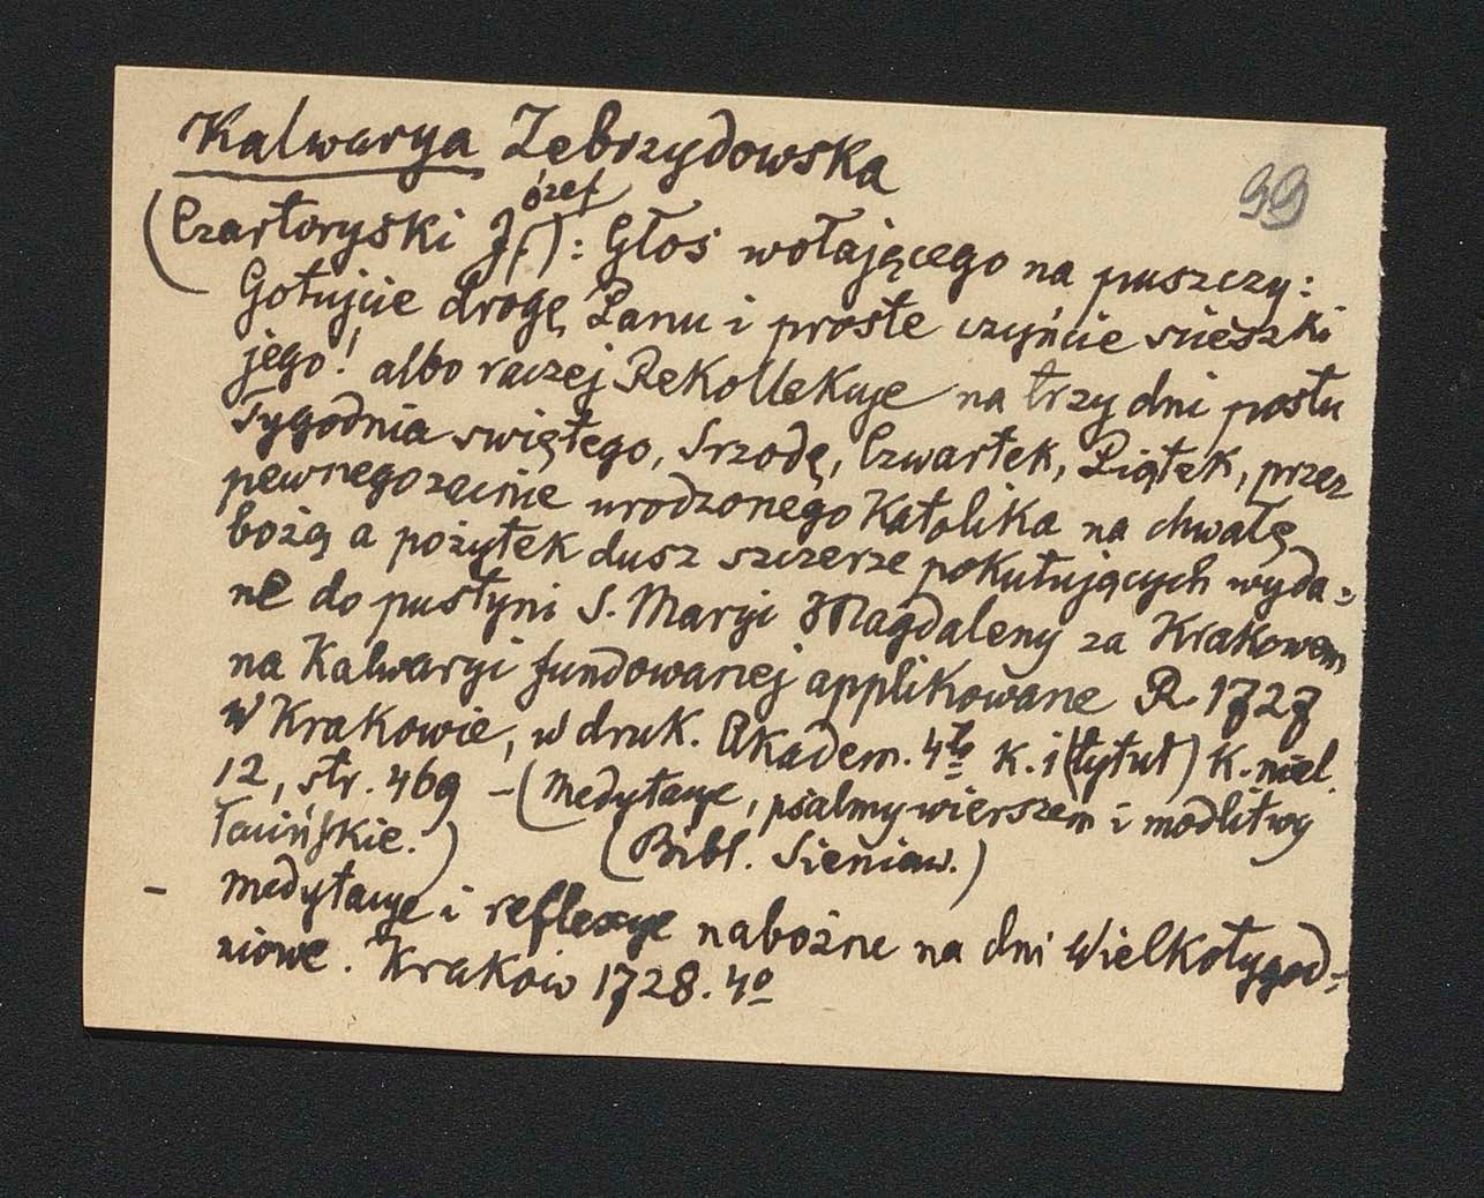 Kalwarya Zebrzydowska
99
(Czartoryski Józef): Głos wołającego na puszczy:
Gotujcie drogę Panu i proste czyńcie scieszki
jego! albo raczej Rekollekcye na trzy dni postu
Tygodnia swiętego, Srzodę, Czwartek, Piątek, przez
pewnego zacnie urodzonego Katolika na chwałę
bożą a pożytek dusz szczerze pokutujących wyda=
ne do pustyni S. Maryi Magdaleny za Krakowem
na Kalwaryi fundowanej applikowane R. 1727
w Krakowie, w druk. Akadem. 4to k. i (tytuł) k. niel.
12, str. 469 – (Medytacye, psalmy wierszem i modlitwy
łacińskie.) (Bibl. Sieniaw.)
– Medytacye i reflexye nabożne na dni Wielkotygod=
niowe. Kraków 1728. 4o